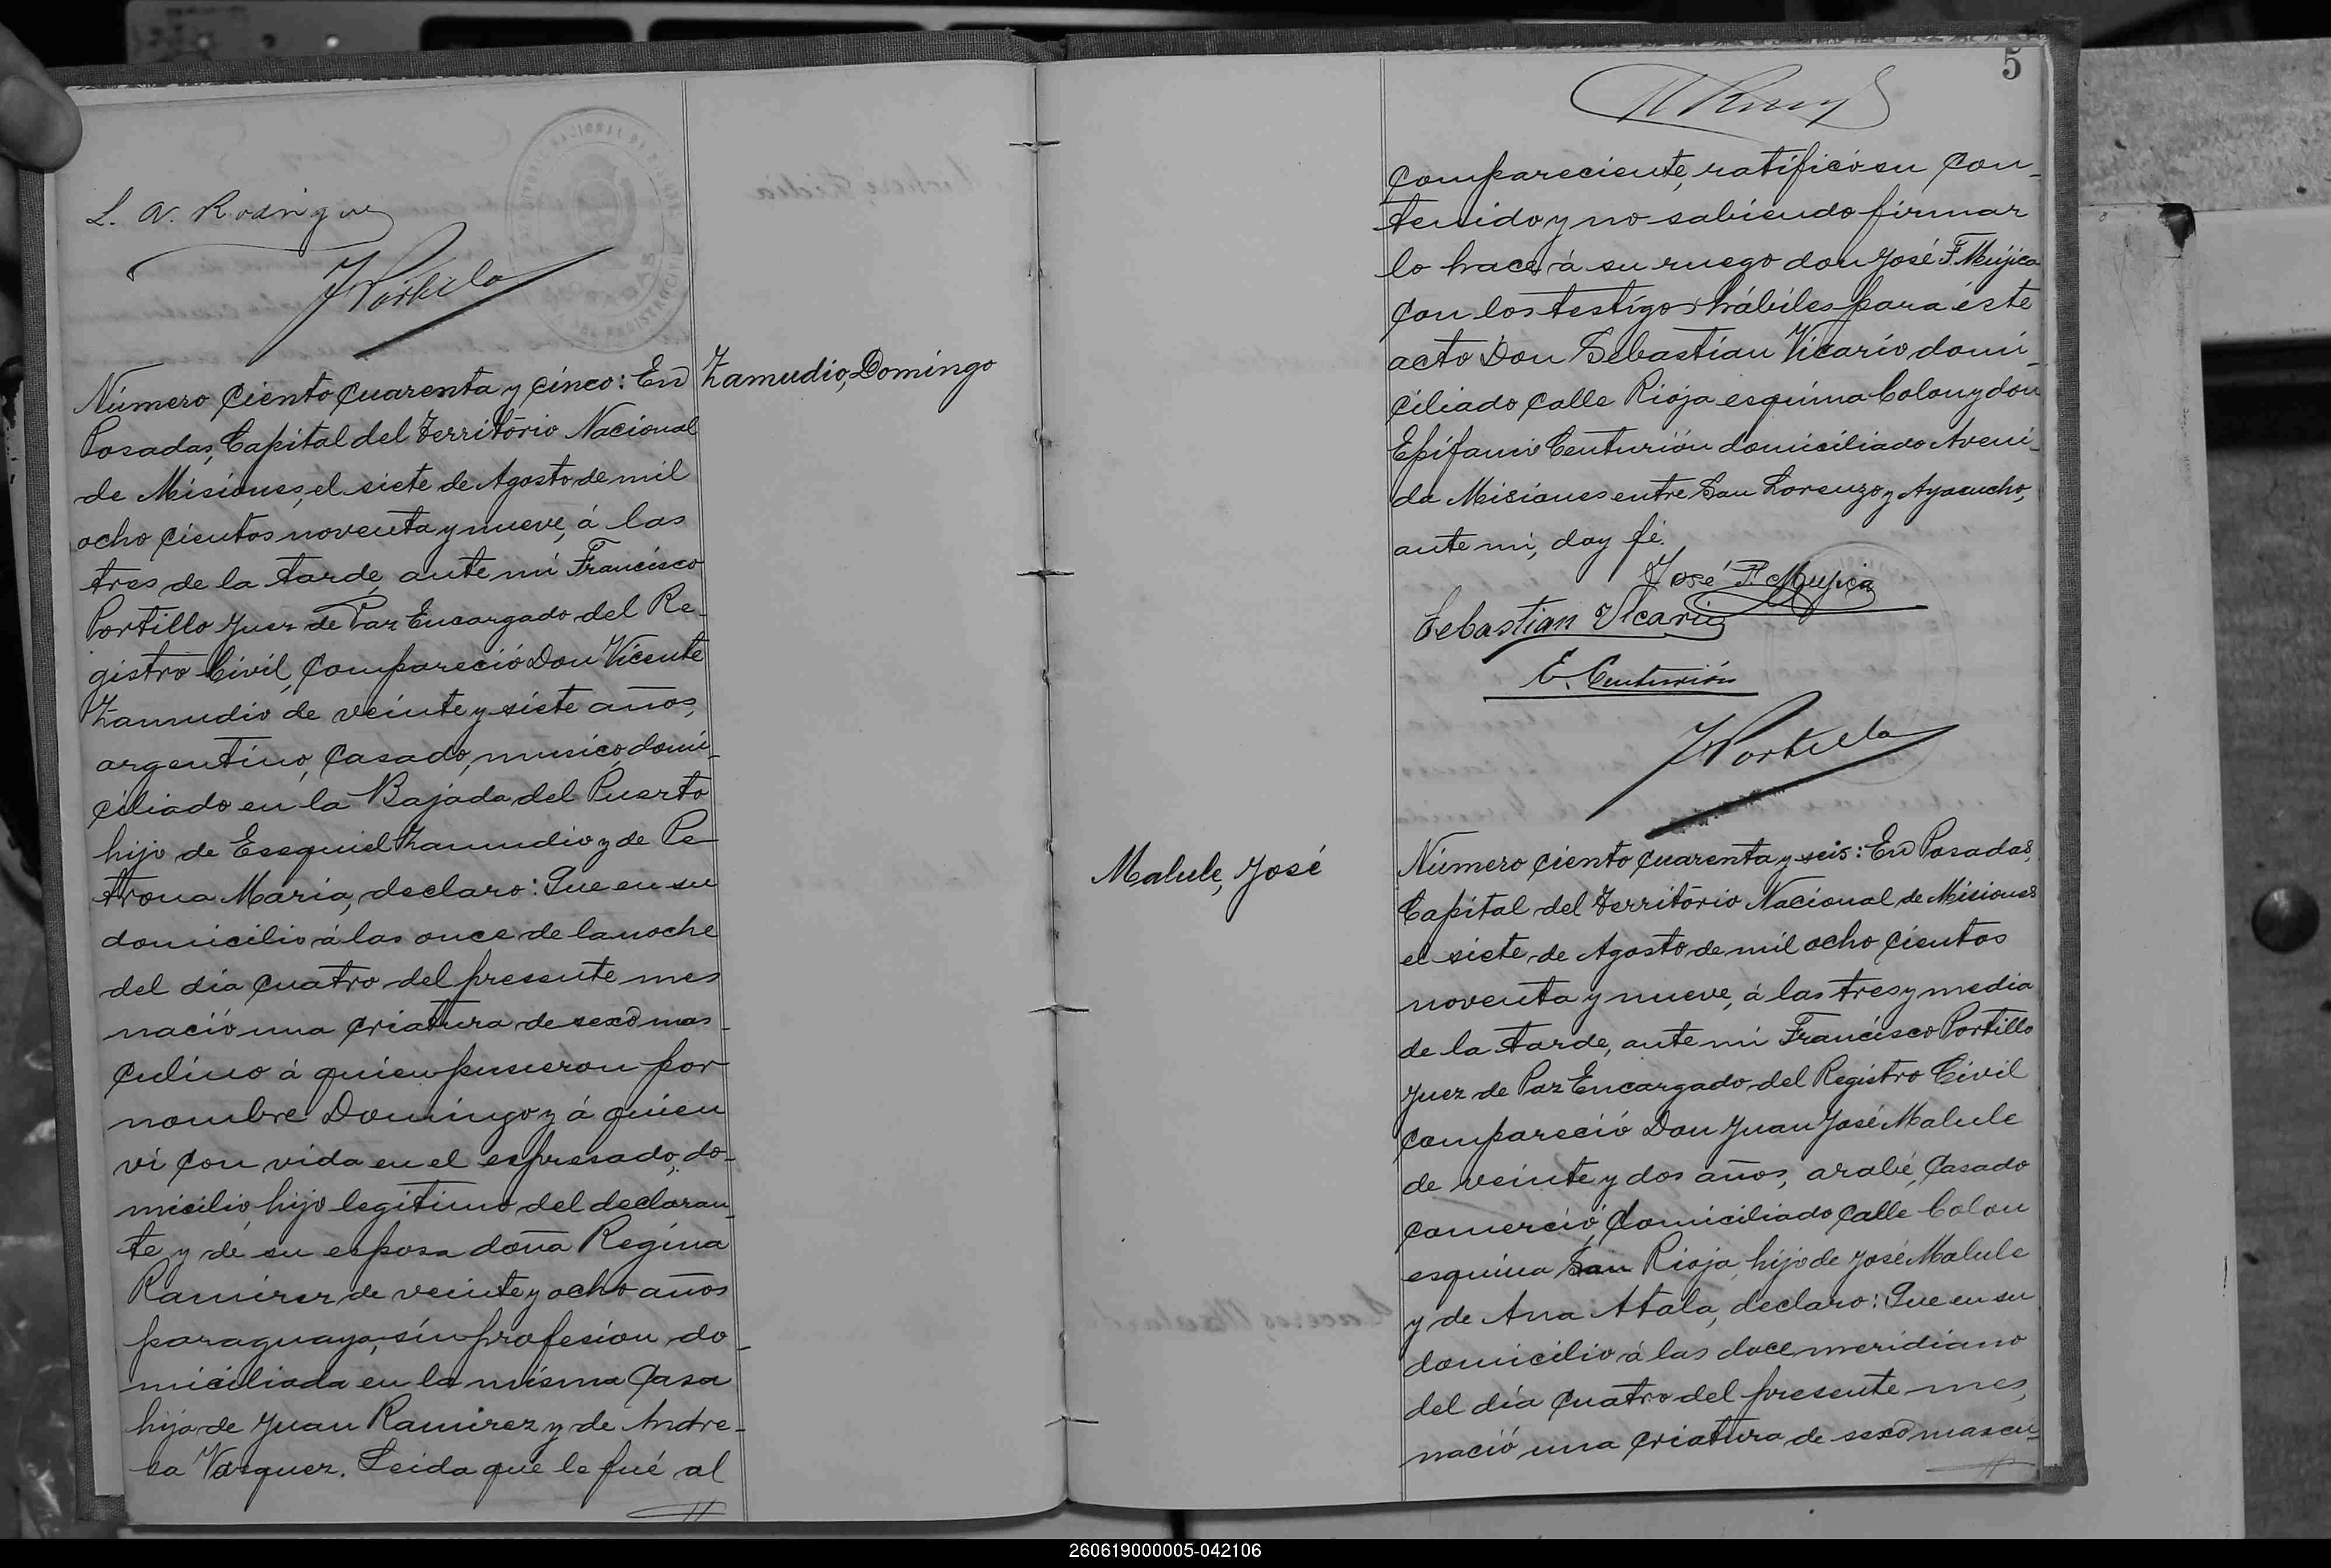 L. A. Rodriguez
F Portillo
Zamudio, Domingo
Número ciento cuarenta y cinco: En
Posadas, Capital del Territorio Nacional
de Misiones, el siete de Agosto de mil
ocho cientos noventa y nueve, á las
tres de la tarde, ante mi Francisco
Portillo Juez de Paz Encargado del Re-
gistro Civil, compareció Don Vicente
Zamudio de veinte y siete años,
argentino, casado, musico, domi-
ciliado en la Bajada del Puerto
hijo de Esequiel Zamudio y de Pe-
trona Maria, declaro: Que en su
domicilio á las once de la noche
del dia cuatro del presente mes
nació una criatura de sexo mas-
culino á quien pusieron por
nombre Domingo y á quien
vi con vida en el espresado, do-
micilio, hijo legitimo del declaran-
te y de su esposa doña Regina
Ramirez de veinte y ocho años
paraguaya, sin profesion, do-
miciliada en la misma casa
hija de Juan Ramirez y de Andre-
sa Vasquez. Leida que le fué al
5
compareciente, ratificó su con-
tenido y no sabiendo firmar
lo hace á su ruego don José F. Mujica
con los testigos hábiles para éste
acto Don Sebastian Vicario domi-
ciliado calle Rioja esquina Colon y don
Epifanio Centurión domiciliado Aveni-
da Misiones entre San Lorenzo y Ayacucho,
ante mi, doy fé.
José F. Mujica
Sebastian Vicario
E. Centurión
F Portillo
Malule, José
Número ciento cuarenta y seis: En Posadas,
Capital del Territorio Nacional de Misiones
el siete de Agosto de mil ocho cientos
noventa y nueve, á las tres y media
de la tarde, ante mi Francisco Portillo
Juez de Paz Encargado del Registro Civil
compareció Don Juan José Malule
de veinte y dos años, arabe, casado
comercio, domiciliado calle Colon
esquina San Rioja, hijo de José Malule
y de Ana Atala, declaro: Que en su
domicilio á las doce meridiano
del dia cuatro del presente mes,
nació una criatura de sexo mascu-
260619000005-042106